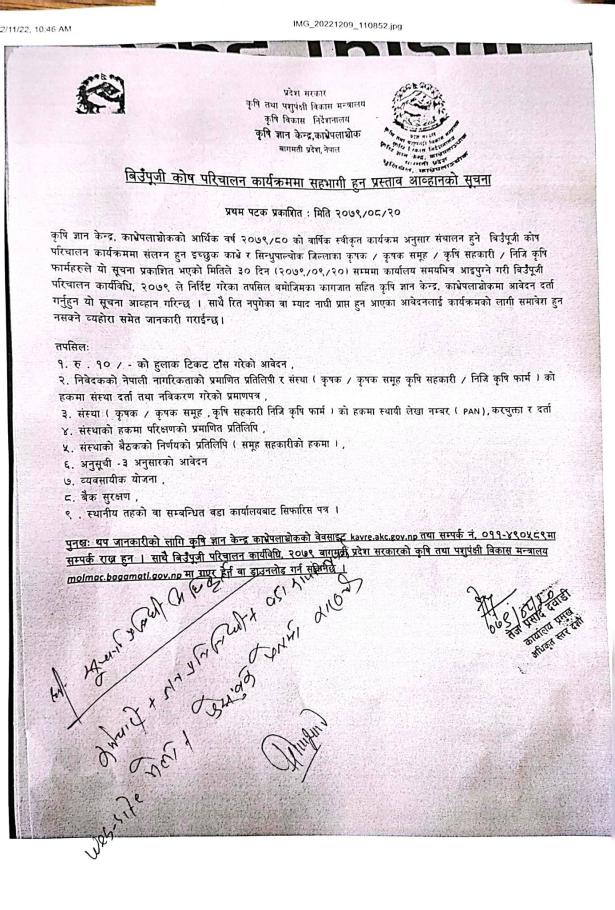 2/11/22, 10:46 AM
IMG_20221209_110852.jpg
प्रदेश सरकार
कृषि तथा पशुपंक्षी विकास मन्त्रालय
कृषि विकास निर्देशनालय
कृषि ज्ञान केन्द्र,काभ्रेपलाञ्चोक
बागमती प्रदेश,नेपाल
बिउँपूजी कोष परिचालन कार्यक्रममा सहभागी हुन प्रस्ताव आव्हानको सूचना
प्रथम पटक प्रकाशित : मिति २०७९/०८/२०
कृषि ज्ञान केन्द्र, काभ्रेपलाञ्चोकको आर्थिक वर्ष २०७९/८० को वार्षिक स्वीकृत कार्यक्रम अनुसार संचालन हुने बिउँपूजी कोष
परिचालन कार्यक्रममा संलग्न हुन इच्छुक काभ्रे र सिन्धुपाल्चोक जिल्लाका कृषक / कृषक समूह / कृषि सहकारी / निजि कृषि
फार्महरुले यो सूचना प्रकाशित भएको मितिले ३० दिन (२०७९/०९/२०) सम्ममा कार्यालय समयभित्र आइपुग्ने गरी बिउँपूजी
परिचालन कार्यविधि, २०७९ ले निर्दिष्ट गरेका तपसिल बमोजिमका कागजात सहित कृषि ज्ञान केन्द्र, काभ्रेपलाञ्चोकमा आवेदन दर्ता
गर्नुहुन यो सूचना आव्हान गरिन्छ । साथै रित नपुगेका वा म्याद नाघी प्राप्त हुन आएका आवेदनलाई कार्यक्रमको लागी समावेश हुन
नसक्ने व्यहोरा समेत जानकारी गराईन्छ।
तपसिलः
१. रु . १० / - को हुलाक टिकट टाँस गरेको आवेदन ,
२. निवेदकको नेपाली नागरिकताको प्रमाणित प्रतिलिपी र संस्था ( कृषक / कृषक समूह कृषि सहकारी / निजि कृषि फार्म ) को
हकमा संस्था दर्ता तथा नविकरण गरेको प्रमाणपत्र ,
३. संस्था ( कृषक / कृषक समूह ,कृषि सहकारी निजि कृषि फार्म ) को हकमा स्थायी लेखा नम्बर ( PAN),करचुक्ता र दर्ता
४. संस्थाको हकमा परिक्षणको प्रमाणित प्रतिलिपि ,
५. संस्थाको बैठकको निर्णयको प्रतिलिपि ( समूह सहकारीको हकमा ) ,
६. अनुसूची -३ अनुसारको आवेदन
७. व्यवसायीक योजना ,
८. बैंक सुरक्षण ,
९ . स्थानीय तहको वा सम्बन्धित वडा कार्यालयबाट सिफारिस पत्र ।
पुनश्चः थप जानकारीको लागि कृषि ज्ञान केन्द्र काभ्रेपलाञ्चोकको वेवसाइट kavre.akc.gov.np तथा सम्पर्क नं. ०११-४९०५८९मा
सम्पर्क राख्न हुन । साथै बिउँपूजी परिचालन कार्यविधि, २०७९ बागमती प्रदेश सरकारको कृषि तथा पशुपंक्षी विकास मन्त्रालय
molmac.bagamati.gov.np मा गएर हेर्न वा डाउनलोड गर्न सकिनेछ ।
तेज प्रसाद देवाडी
कार्यालय प्रमुख
अधिकृत स्तर दशौं
web-site